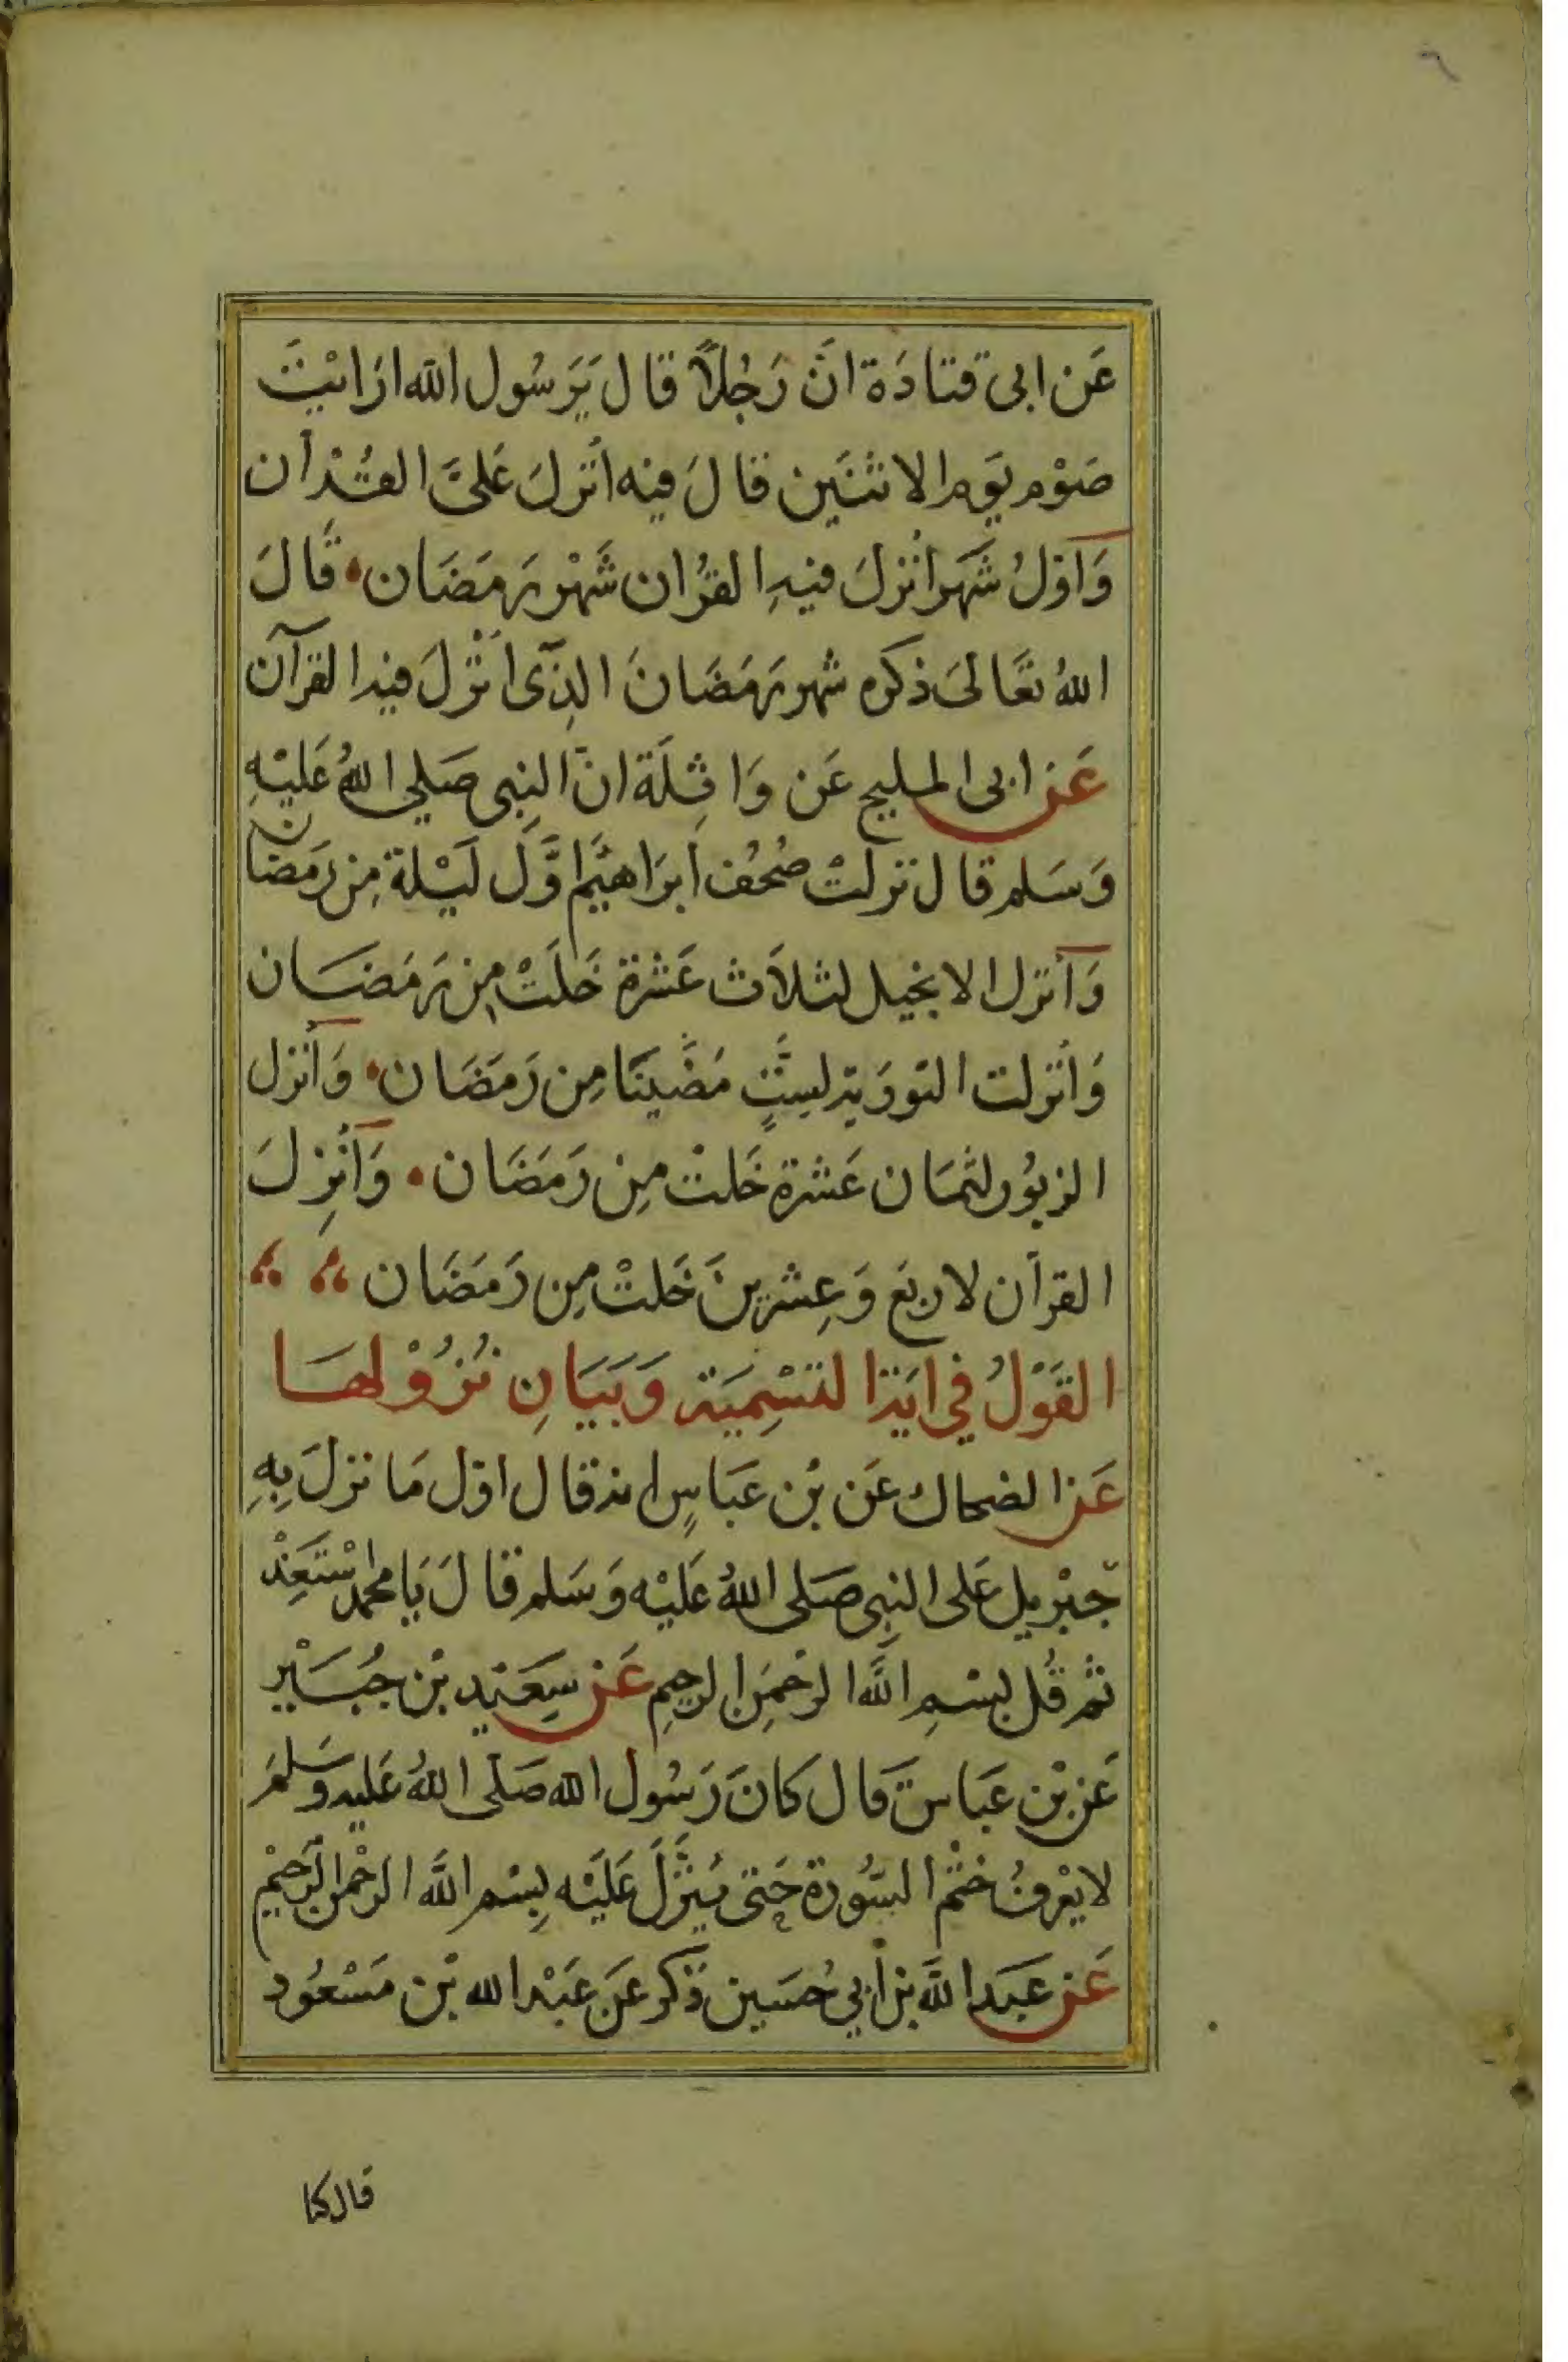 ٦
عَن ابى قتادَة انَّ رَجُلاً قال يَرَسُول الله ارَايْتَ
صَوْم يَوم الاثنَين قالَ فيْه اُنْزلَ عَليَّ القُرْأن
وَاَوّلُ شَهَر اُنْزلَ فيْهِ القُرْان شَهْر رَمَضَان قَالَ
اللهُ تعَالىَ ذكره شهر رَمَضَانَ الذِّى اُنْزلَ فيه القرآن
عَن ابى المليح عَن وَاثِلَة انّ النبِى صَلى اللهُ عَليْهِ
وَسَلم قال نزلتْ صُحُف ابرَاهيْم اوَّلَ لَيْلة مِن رَمَضَان
وَاُنزل الانجيل لثلاَث عَشرة خَلَتْ مِن رَمَضَان
وَانزلت التوَرية لسِتٍّ مَضَيْنَا مِن رَمَضَان وَاُنزل
الزبوُر لثمَان عَشرة خَلتْ مِن رَمَضَان وَاُنْزِلَ
القرآن لاربَع وَعِشرينَ خَلتْ مِن رَمَضَان
القَوْلُ فِي ايَة التسْمِيَة وَبَيَانِ نُزُوْلهَا
عَن الضحاك عَن بْن عَبَاسٍ انه قال اوّل مَا نزلَ بِهِ
جِبْريل عَلى النبِى صَلى اللهُ عَليْه وَسَلم قالَ يَا محمد سْتَعِذْ
ثم قُل بسْمِ اللَّه الرحْمَن الرحِيمِ عَن سِعَيْد بْن جُبَيْر
عَن بْن عَبَاس قال كانَ رَسُول الله صَلى اللهُ عَليه وسَلمَ
لا يعْرفُ خَتْم السُّورة حَتى يُنْزَلَ عَليْه بِسْم اللَّه الرحْمن الرَحِيْم
عَن عَبَد اللَّه بن اَبي حُسَين ذكَر عَن عَبْد الله بْن مَسْعُود
قال كنا